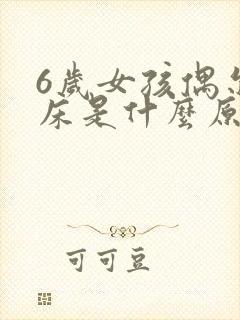 6歲女孩偶
床是什麼原
可可豆